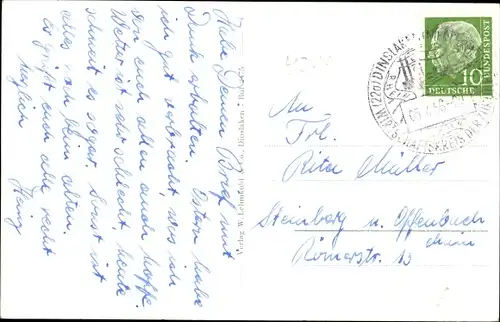 Habe Deinen Brief mit
Dank erhalten. Ostern habe
ich gut verbracht, was ich
von euch allen auch hoffe.
Wetter ist sehr schlecht heute
schneit es sogar. Sonst ist
alles beim alten.
Es grüßt euch alle recht
herzlich
Heinz
Verlag W. Lehmkuhl & Co., Dinslaken
An
Frl.
Rita Müller
Steinberg u. Offenbach
Main
Römerstr. 13
(22a) DINSLAKEN
10
DEUTSCHE
BUNDESPOST